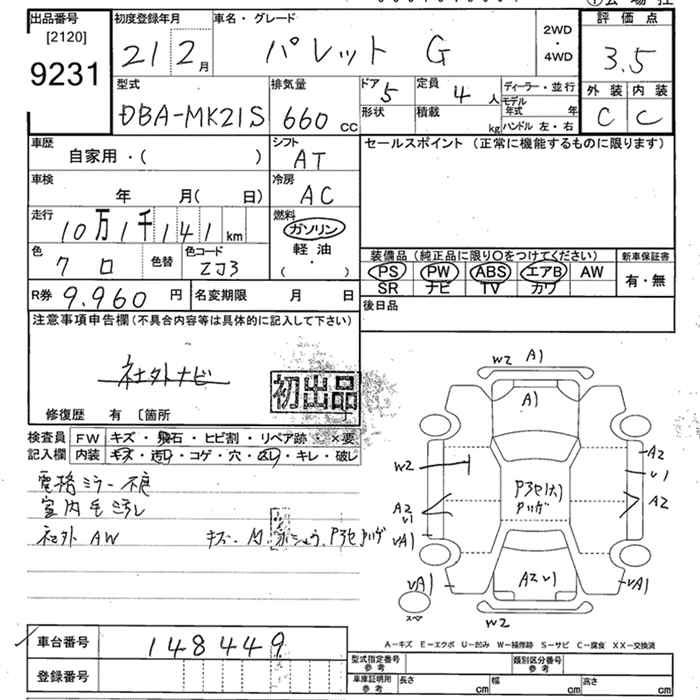 出品番号 初度登録年月 車名・グレード 評価点
[2120] 21 2月 パレット G 2WD・4WD 3.5
9231
型式 排気量 ドア 5 定員 4人 ディーラー・並行 外装 内装
DBA-MK21S 660cc 形状 積載 kg モデル年式 年 C C
ハンドル 左・右
車歴 シフト セールスポイント (正常に機能するものに限ります)
自家用・( ) AT
車検 冷房
年 月( 日) AC
走行 燃料
10万1千141km ガソリン
軽油
・
( )
色 色替 色コード 装備品 (純正品に限り〇をつけてください) 新車保証書
クロ ZJ3 PS PW ABS エアB AW 有・無
SR ナビ TV カワ
R券 9.960円 名変期限 月 日 後日品
注意事項申告欄 (不具合内容等は具体的に記入して下さい)
社外ナビ
初出品
修復歴 有 〔箇所
検査員 FW キズ・飛石・ヒビ割・リペア跡・×要
記入欄 内装 キズ・汚レ・コゲ・穴・スレ・キレ・破レ
電格ミラー不良
室内毛ヨゴレ
社外 AW
W2 A1
A1
W2
A2
U1
A2
A2
U1
UA1
A2 U1
UA1
UA1
スペア
W2
A-キズ E-エクボ U-凹み W-補修跡 S-サビ C-腐食 XX-交換済
車台番号 148449
登録番号
型式指定番号 参考 類別区分番号 参考
車庫証明用 参考 長さ cm 幅 cm 高さ cm